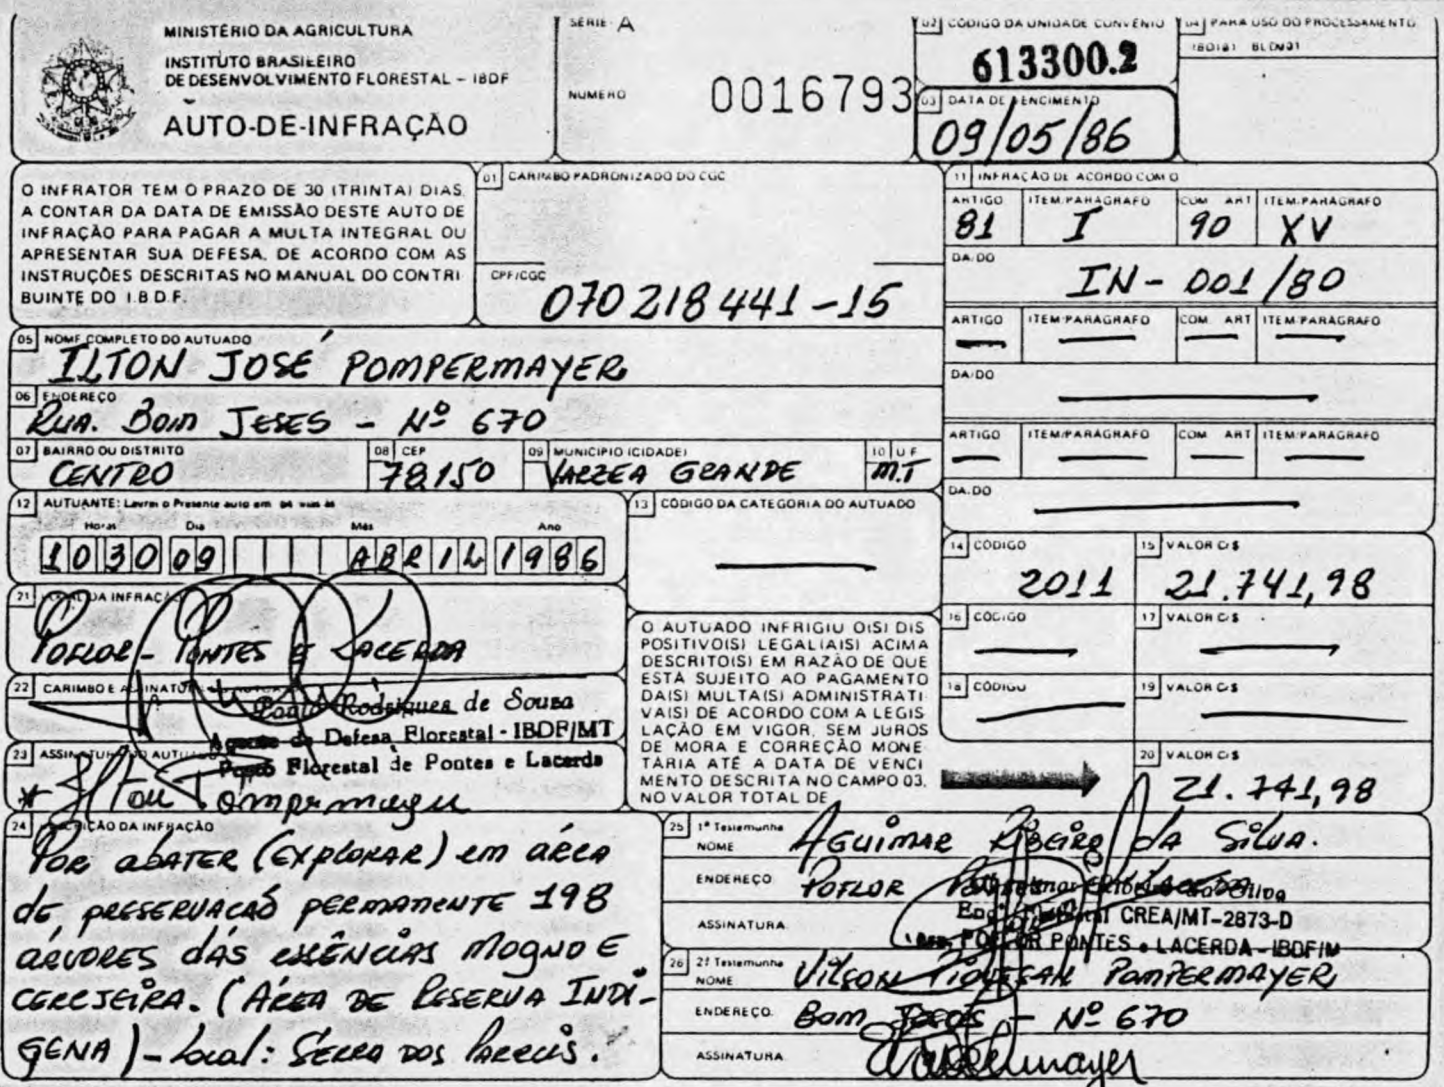 MINISTÉRIO DA AGRICULTURA
INSTITUTO BRASILEIRO
DE DESENVOLVIMENTO FLORESTAL - IBDF
AUTO-DE-INFRAÇÃO
SÉRIE A
NÚMERO 0016793
02 CÓDIGO DA UNIDADE CONVÊNIO
613300.2
03 DATA DE VENCIMENTO
09/05/86
04 PARA USO DO PROCESSAMENTO
O INFRATOR TEM O PRAZO DE 30 (TRINTA) DIAS,
A CONTAR DA DATA DE EMISSÃO DESTE AUTO DE
INFRAÇÃO PARA PAGAR A MULTA INTEGRAL OU
APRESENTAR SUA DEFESA, DE ACORDO COM AS
INSTRUÇÕES DESCRITAS NO MANUAL DO CONTRI
BUINTE DO I.B.D.F.
01 CARIMBO PADRONIZADO DO CGC
CPF/CGC
070218441-15
11 INFRAÇÃO DE ACORDO COM O
ARTIGO ITEM/PARÁGRAFO COM ART ITEM/PARÁGRAFO
81 I 90 XV
DA/DO
IN - 001/80
ARTIGO ITEM/PARÁGRAFO COM ART ITEM/PARÁGRAFO
DA/DO
ARTIGO ITEM/PARÁGRAFO COM ART ITEM/PARÁGRAFO
DA/DO
05 NOME COMPLETO DO AUTUADO
ILTON JOSÉ POMPERMAYER
06 ENDEREÇO
RUA. BOM JESES - Nº 670
07 BAIRRO OU DISTRITO
CENTRO
08 CEP
78.150
09 MUNICÍPIO (CIDADE)
VARZEA GRANDE
10 UF
MT
12 AUTUANTE: Lavrei o Presente auto em
Horas Dia Mês Ano
1030 09 ABRIL 1986
13 CÓDIGO DA CATEGORIA DO AUTUADO
14 CÓDIGO
2011
15 VALOR C/$
21.741,98
16 CÓDIGO
17 VALOR C/$
18 CÓDIGO
19 VALOR C/$
20 VALOR C/$
21.741,98
21 LOCAL DA INFRAÇÃO
POFLOR - PONTES E LACERDA
22 CARIMBO E ASSINATURA
Rodrigues de Sousa
Agente de Defesa Florestal - IBDF/MT
Posto Florestal de Pontes e Lacerda
23 ASSINATURA DO AUTUADO
Ilton Pompermayer
O AUTUADO INFRIGIU O(S) DIS
POSITIVO(S) LEGAL(AIS) ACIMA
DESCRITO(S) EM RAZÃO DE QUE
ESTÁ SUJEITO AO PAGAMENTO
DA(S) MULTA(S) ADMINISTRATI
VA(S) DE ACORDO COM A LEGIS
LAÇÃO EM VIGOR, SEM JUROS
DE MORA E CORREÇÃO MONE
TÁRIA ATÉ A DATA DE VENCI
MENTO DESCRITA NO CAMPO 03,
NO VALOR TOTAL DE
24 DESCRIÇÃO DA INFRAÇÃO
POR ABATER (EXPLORAR) em ÁREA
de PRESERVAÇÃO PERMANENTE 198
ÁRVORES DAS ESSÊNCIAS MOGNO E
CEREJEIRA. (ÁREA DE RESERVA INDÍ-
GENA) - Local: SERRA DOS PARECIS.
25 1ª Testemunha
NOME AGUIMAR RIBEIRO DA SILVA.
ENDEREÇO POFLOR
ASSINATURA
CREA/MT-2873-D
POFLOR PONTES e LACERDA - IBDF/M
26 2ª Testemunha
NOME VILSON POMPERMAYER
ENDEREÇO BOM JESES - Nº 670
ASSINATURA